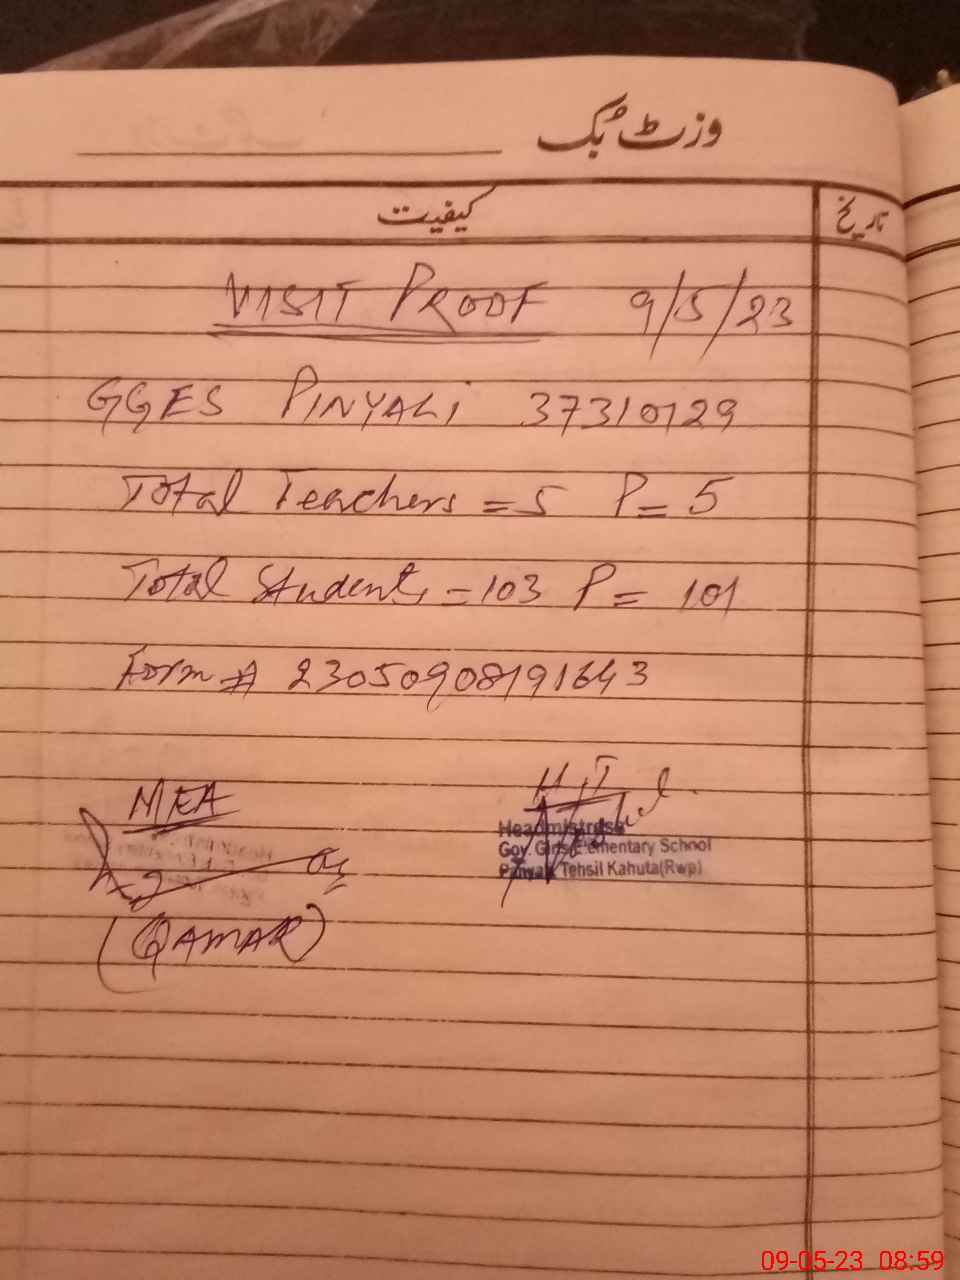 وزٹ بک
کیفیت
تاریخ
VISIT PROOF 9/5/23
GGES PINYALI 37310129
Total Teachers = 5 P = 5
Total Students = 103 P = 101
Form # 23050908191643
MEA
H.T
Headmistress
Gov. Girls Elementary School
Pinyali Tehsil Kahuta(Rwp)
(QAMAR)
09-05-23 08:59